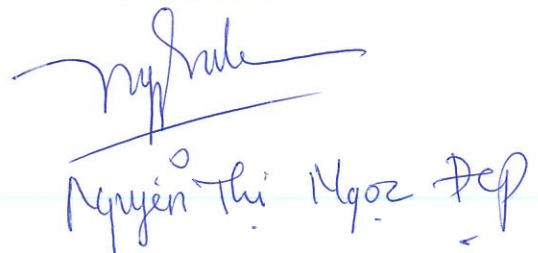 Nguyễn Thị Ngọc Đẹp